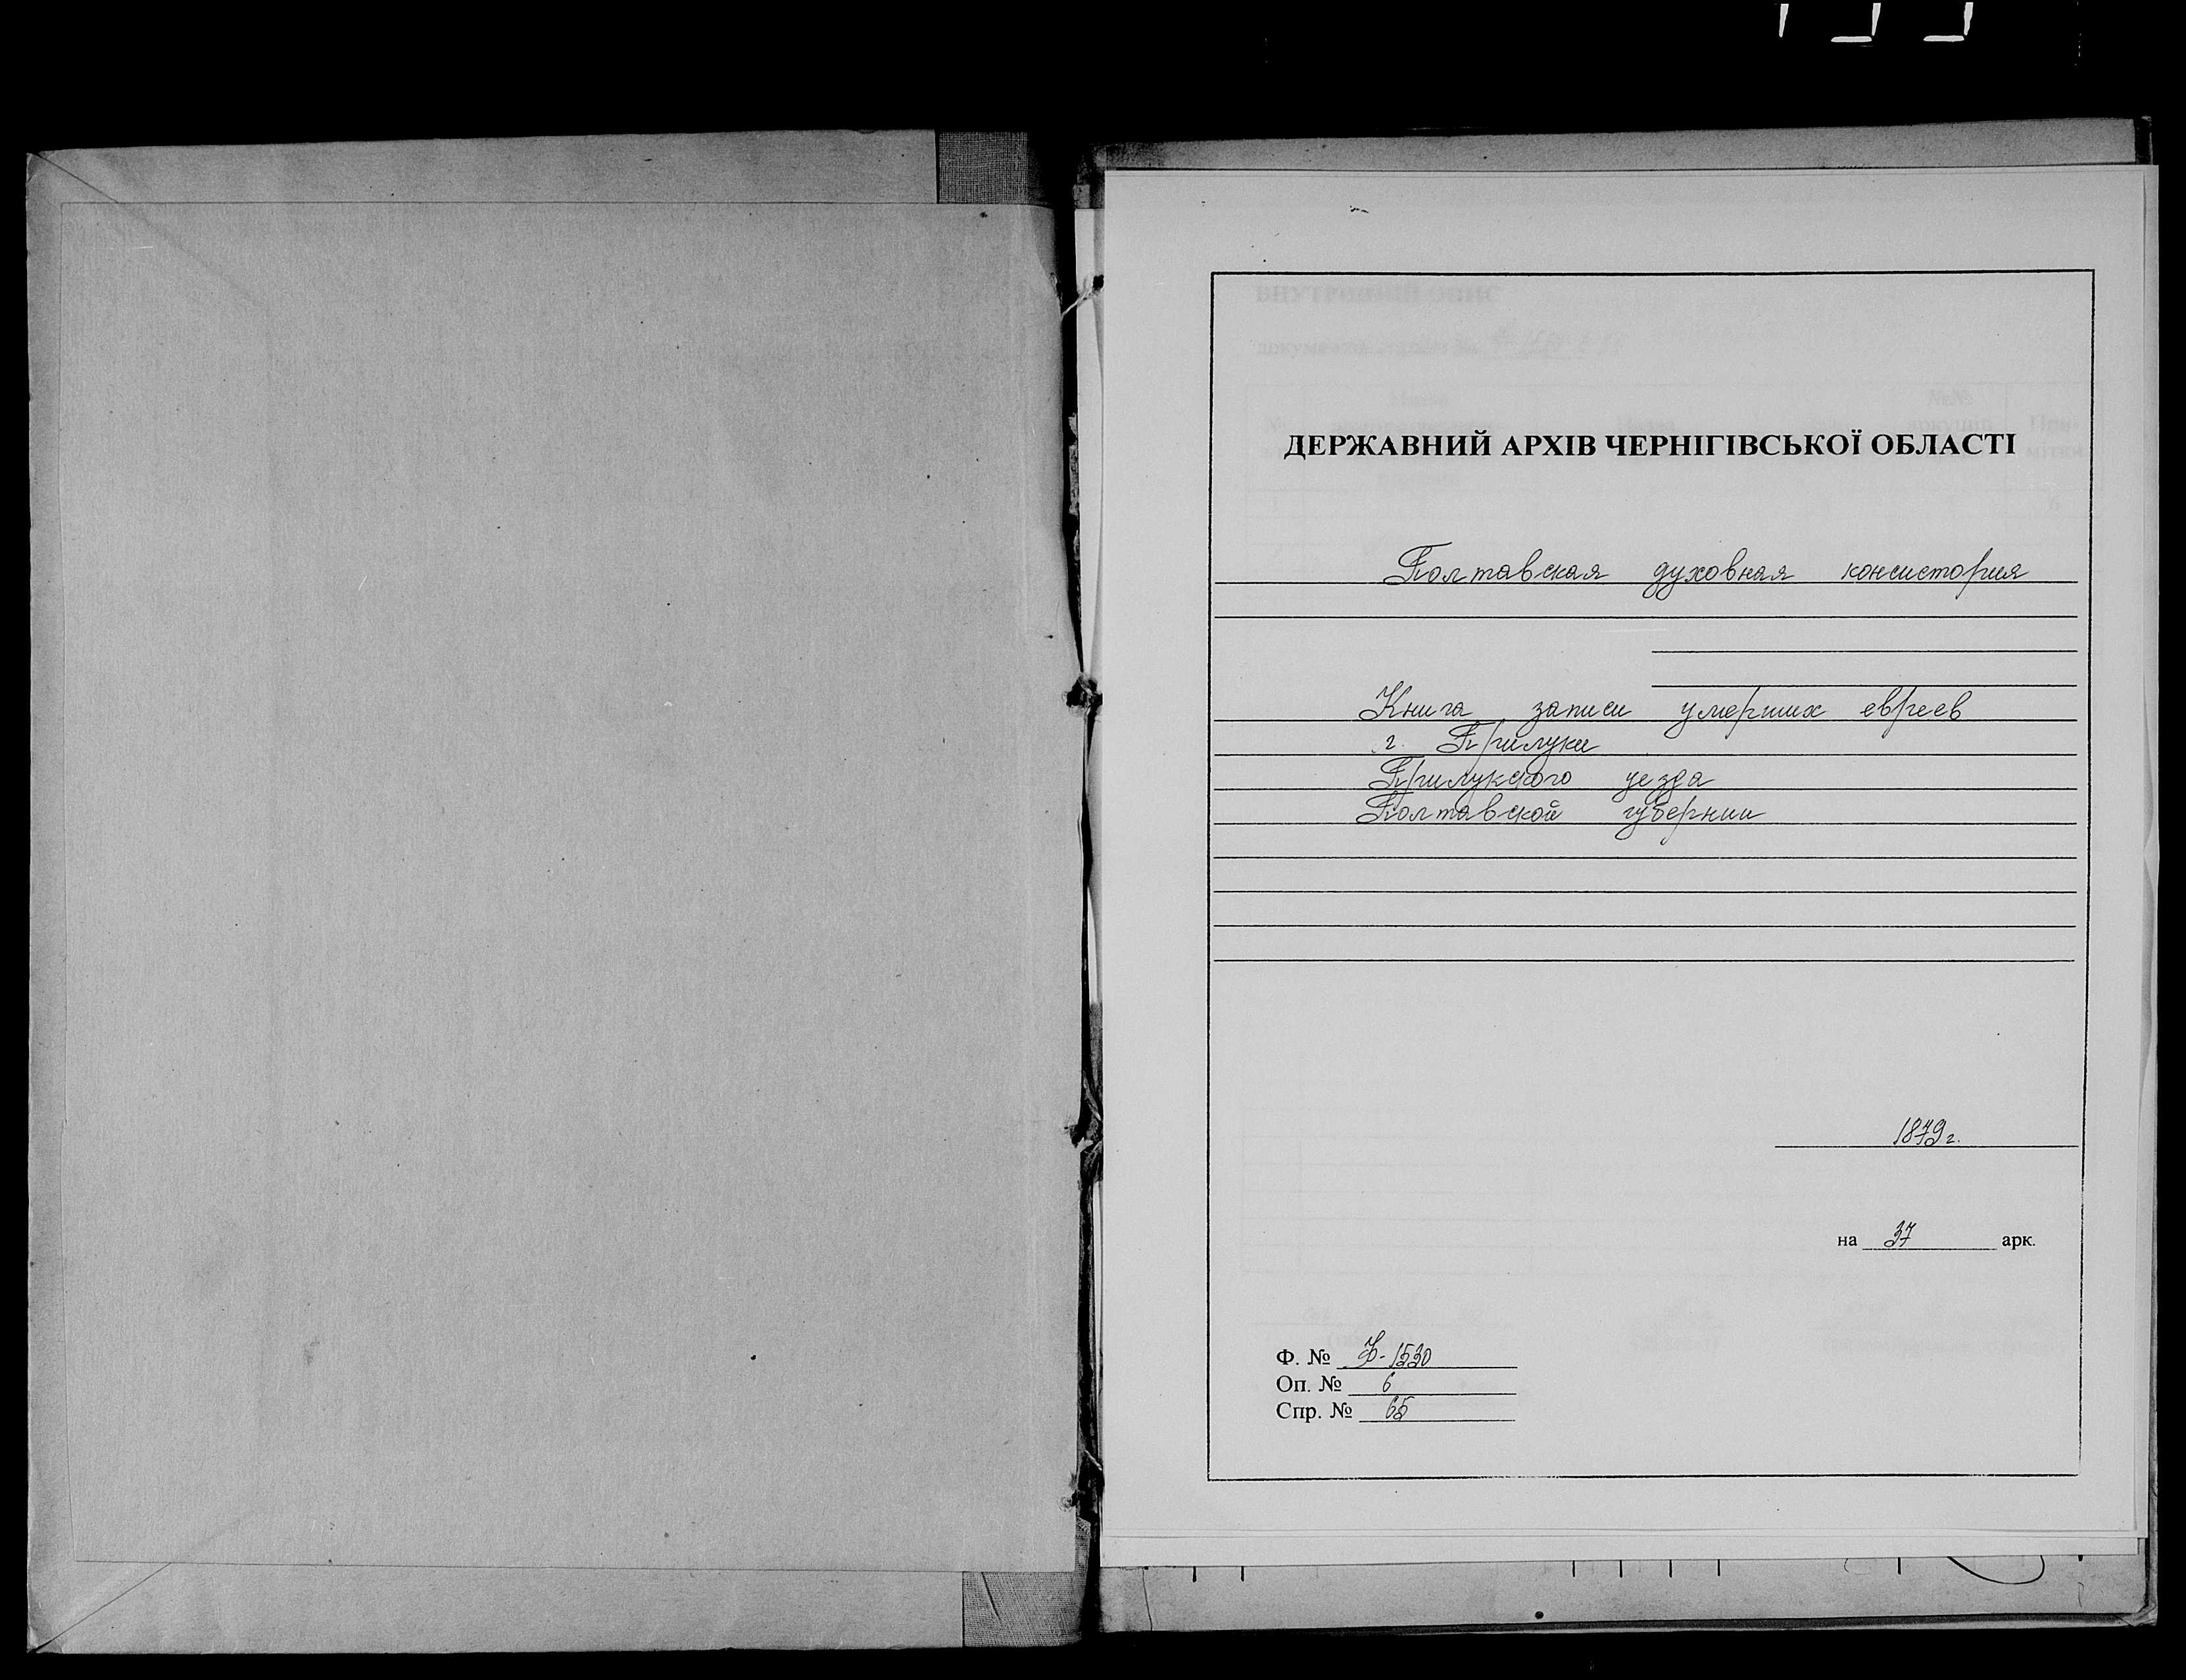 ДЕРЖАВНИЙ АРХІВ ЧЕРНІГІВСЬКОЇ ОБЛАСТІ
Полтавская духовная консистория
Книга записи умерших евреев
г. Прилуки
Прилукского уезда
Полтавской губернии
1879 г.
на 37 арк.
Ф. № Ф-1530
Оп. № 6
Спр. № 65